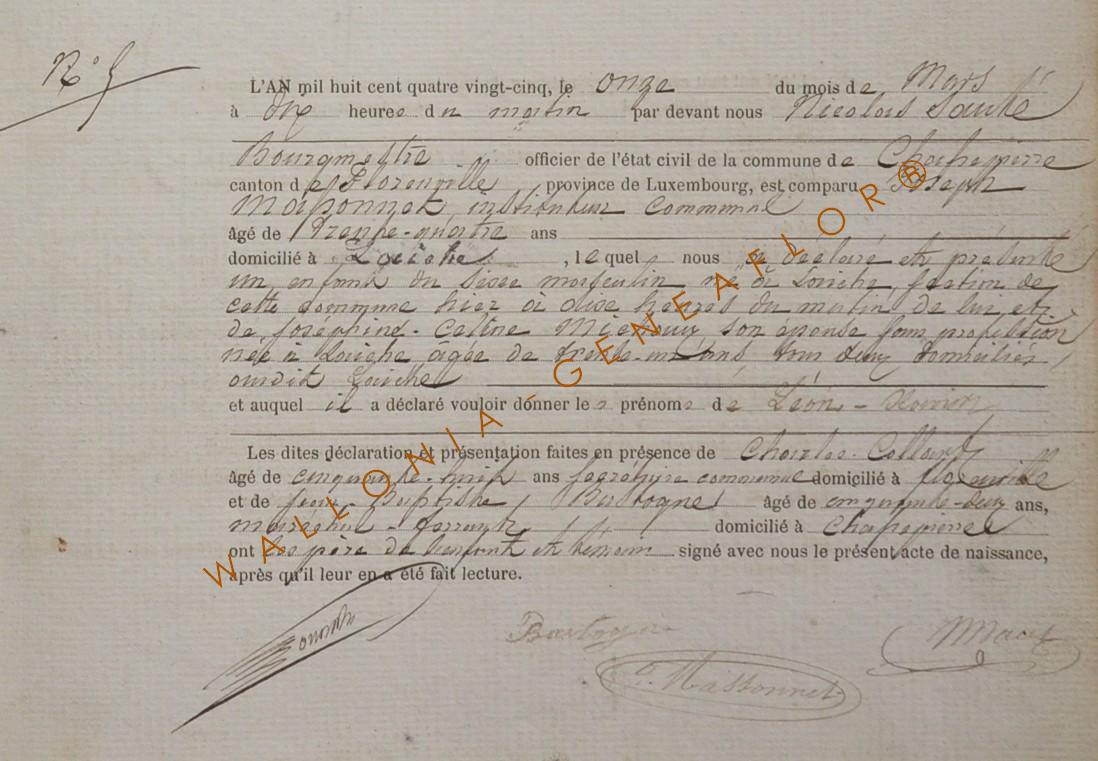 N° 5
L'AN mil huit cent quatre vingt-cinq, le onze du mois de Mars
à dix heures du matin par devant nous Nicolas
Bourgmestre officier de l'état civil de la commune de Chassepierre
canton de Florenville province de Luxembourg, est comparu Joseph
Massonnet, instituteur communal
âgé de Trente-quatre ans
domicilié à Laiche, lequel nous a déclaré et présenté
un enfant du sexe masculin né à Laiche, section de
cette commune hier à onze heures du matin de lui et
de Joséphine-Celine son épouse sans profession
née à Laiche âgée de trente-un ans, tous deux domiciliés
audit Laiche
et auquel il a déclaré vouloir donner les prénoms de Léon-
Les dites déclaration et présentation faites en présence de Charles Collard
âgé de cinquante-huit ans secrétaire communal domicilié à
et de Jean-Baptiste Bastogne âgé de cinquante-deux ans,
maréchal-ferrant domicilié à Chassepierre
ont les père de l'enfant et témoins signé avec nous le présent acte de naissance,
après qu'il leur en a été fait lecture.
Bastogne
J. Massonnet
WALLONIA-GENEAFLOR®